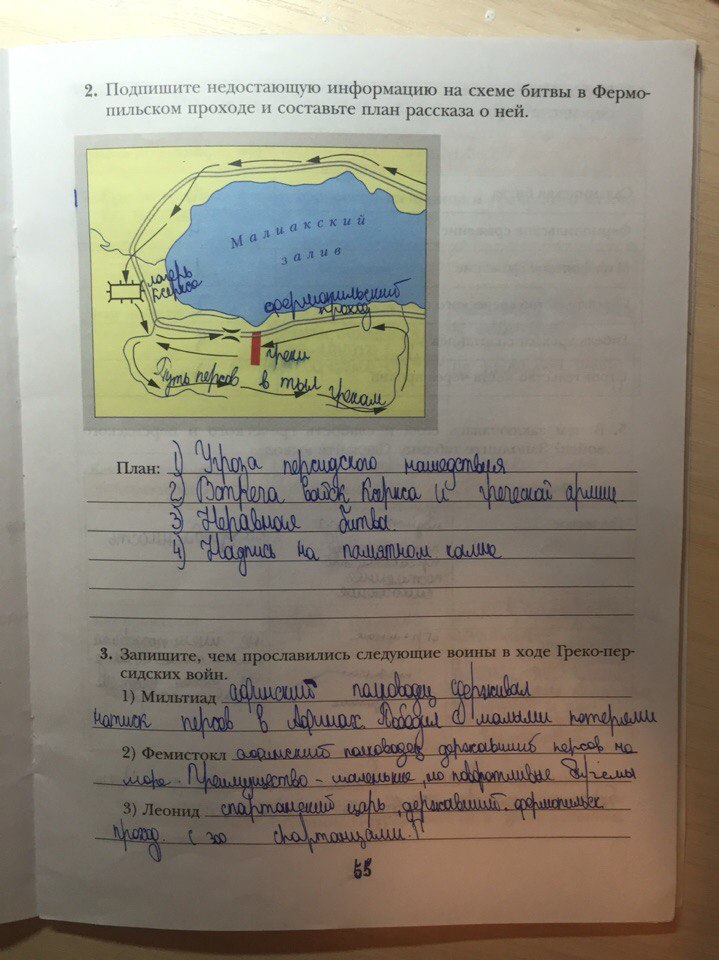 2. Подпишите недостающую информацию на схеме битвы в Фермо-
пильском проходе и составьте план рассказа о ней.
Малиакский
залив
лагерь
Ксеркса
фермопильский
проход
греки
Путь персов в тыл грекам
План: 1) Угроза персидского нашедствия
2) Встреча войск Ксеркса и греческой армии.
3) Неравная битва.
4) Надпись на памятном камне
3. Запишите, чем прославились следующие воины в ходе Греко-пер-
сидских войн.
1) Мильтиад афинский полководец сдерживал
натиск персов в Афинах. Победил с малыми потерями
2) Фемистокл афинский полководец державший персов на
море. Преимущество - маленькие, но поворотливые
3) Леонид спартанский царь, державший фермопильск
проход. с 300 спартанцами.
55